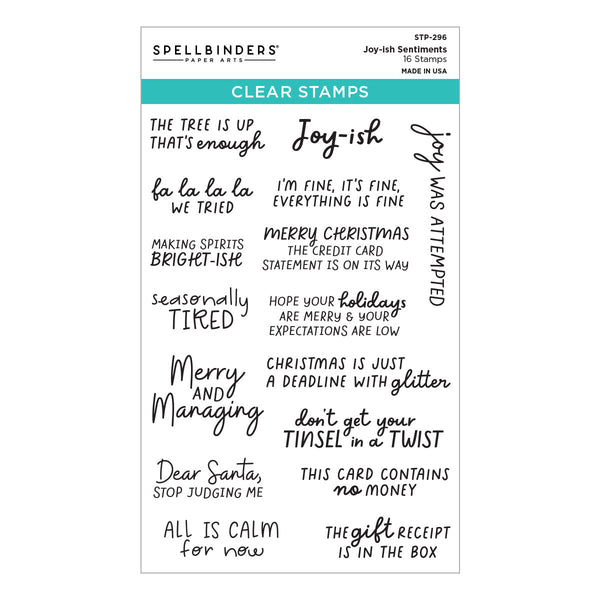 SPELLBINDERS®
PAPER ARTS
STP-296
Joy-ish Sentiments
16 Stamps
MADE IN USA
CLEAR STAMPS
THE TREE IS UP
THAT'S enough
Joy-ish
joy WAS ATTEMPTED
fa la la la
WE TRIED
I'M FINE, IT'S FINE,
EVERYTHING IS FINE
MAKING SPIRITS
BRIGHT-ISH
MERRY CHRISTMAS
THE CREDIT CARD
STATEMENT IS ON ITS WAY
seasonally
TIRED
HOPE YOUR holidays
ARE MERRY & YOUR
EXPECTATIONS ARE LOW
Merry
AND
Managing
CHRISTMAS IS JUST
A DEADLINE WITH glitter
don't get your
TINSEL in a TWIST
Dear Santa,
STOP JUDGING ME
THIS CARD CONTAINS
no MONEY
ALL IS CALM
for now
THE gift RECEIPT
IS IN THE BOX